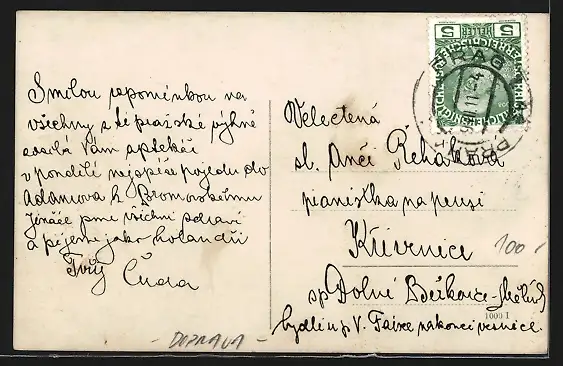 S milou vzpomínkou na
všechny s té pražské výhně
zasílá Vám
v pondělí nejspíše pojedu do
Adamova k Bromovskému
Jináče jsme všichni zdraví
a pijeme jako holandři
Tvůj Čuda
Velectěná
sl. Anči Řeháková
pianistka na penzi
Křivenice
sp Dolní Beřkovice-Mělník
bydlí u p V. Faixe na konci vesnice.
5 HELLER 5
PRAG
PRAHA
100
1009 I
- DOPRAVA -